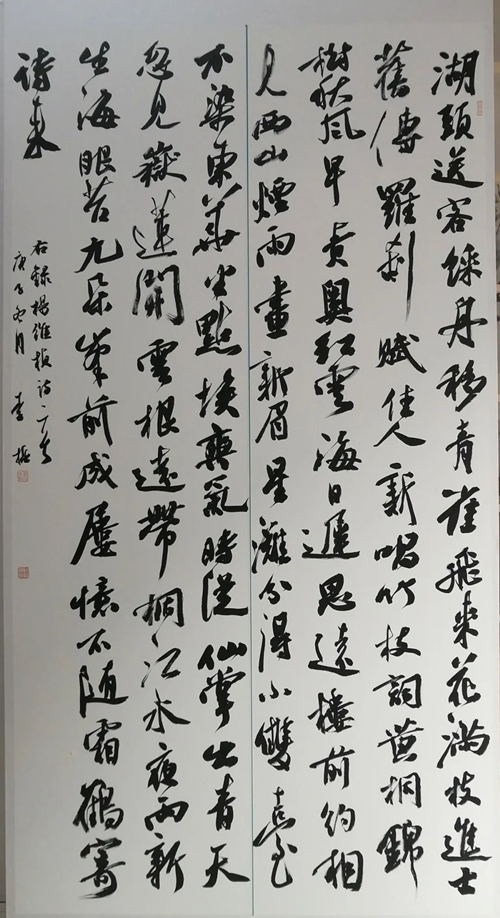 湖頭送客綵舟移青雀飛來花滿枝進士
舊傳羅刹賦佳人新唱竹枝詞黄桐錦
樹秋風早貞與紅雲海日遲思遠樓前約相
見西山煙雨畫新眉星灘分得小雙臺
不染東華半點埃爽氣時從仙掌出青天
忽見嶽蓮開雲根遠帶桐江水夜雨新
生海眼苔九朵峯前成屢憶不隨霜鶴寄
詩來
右錄楊維楨詩二首
庚子冬月 李